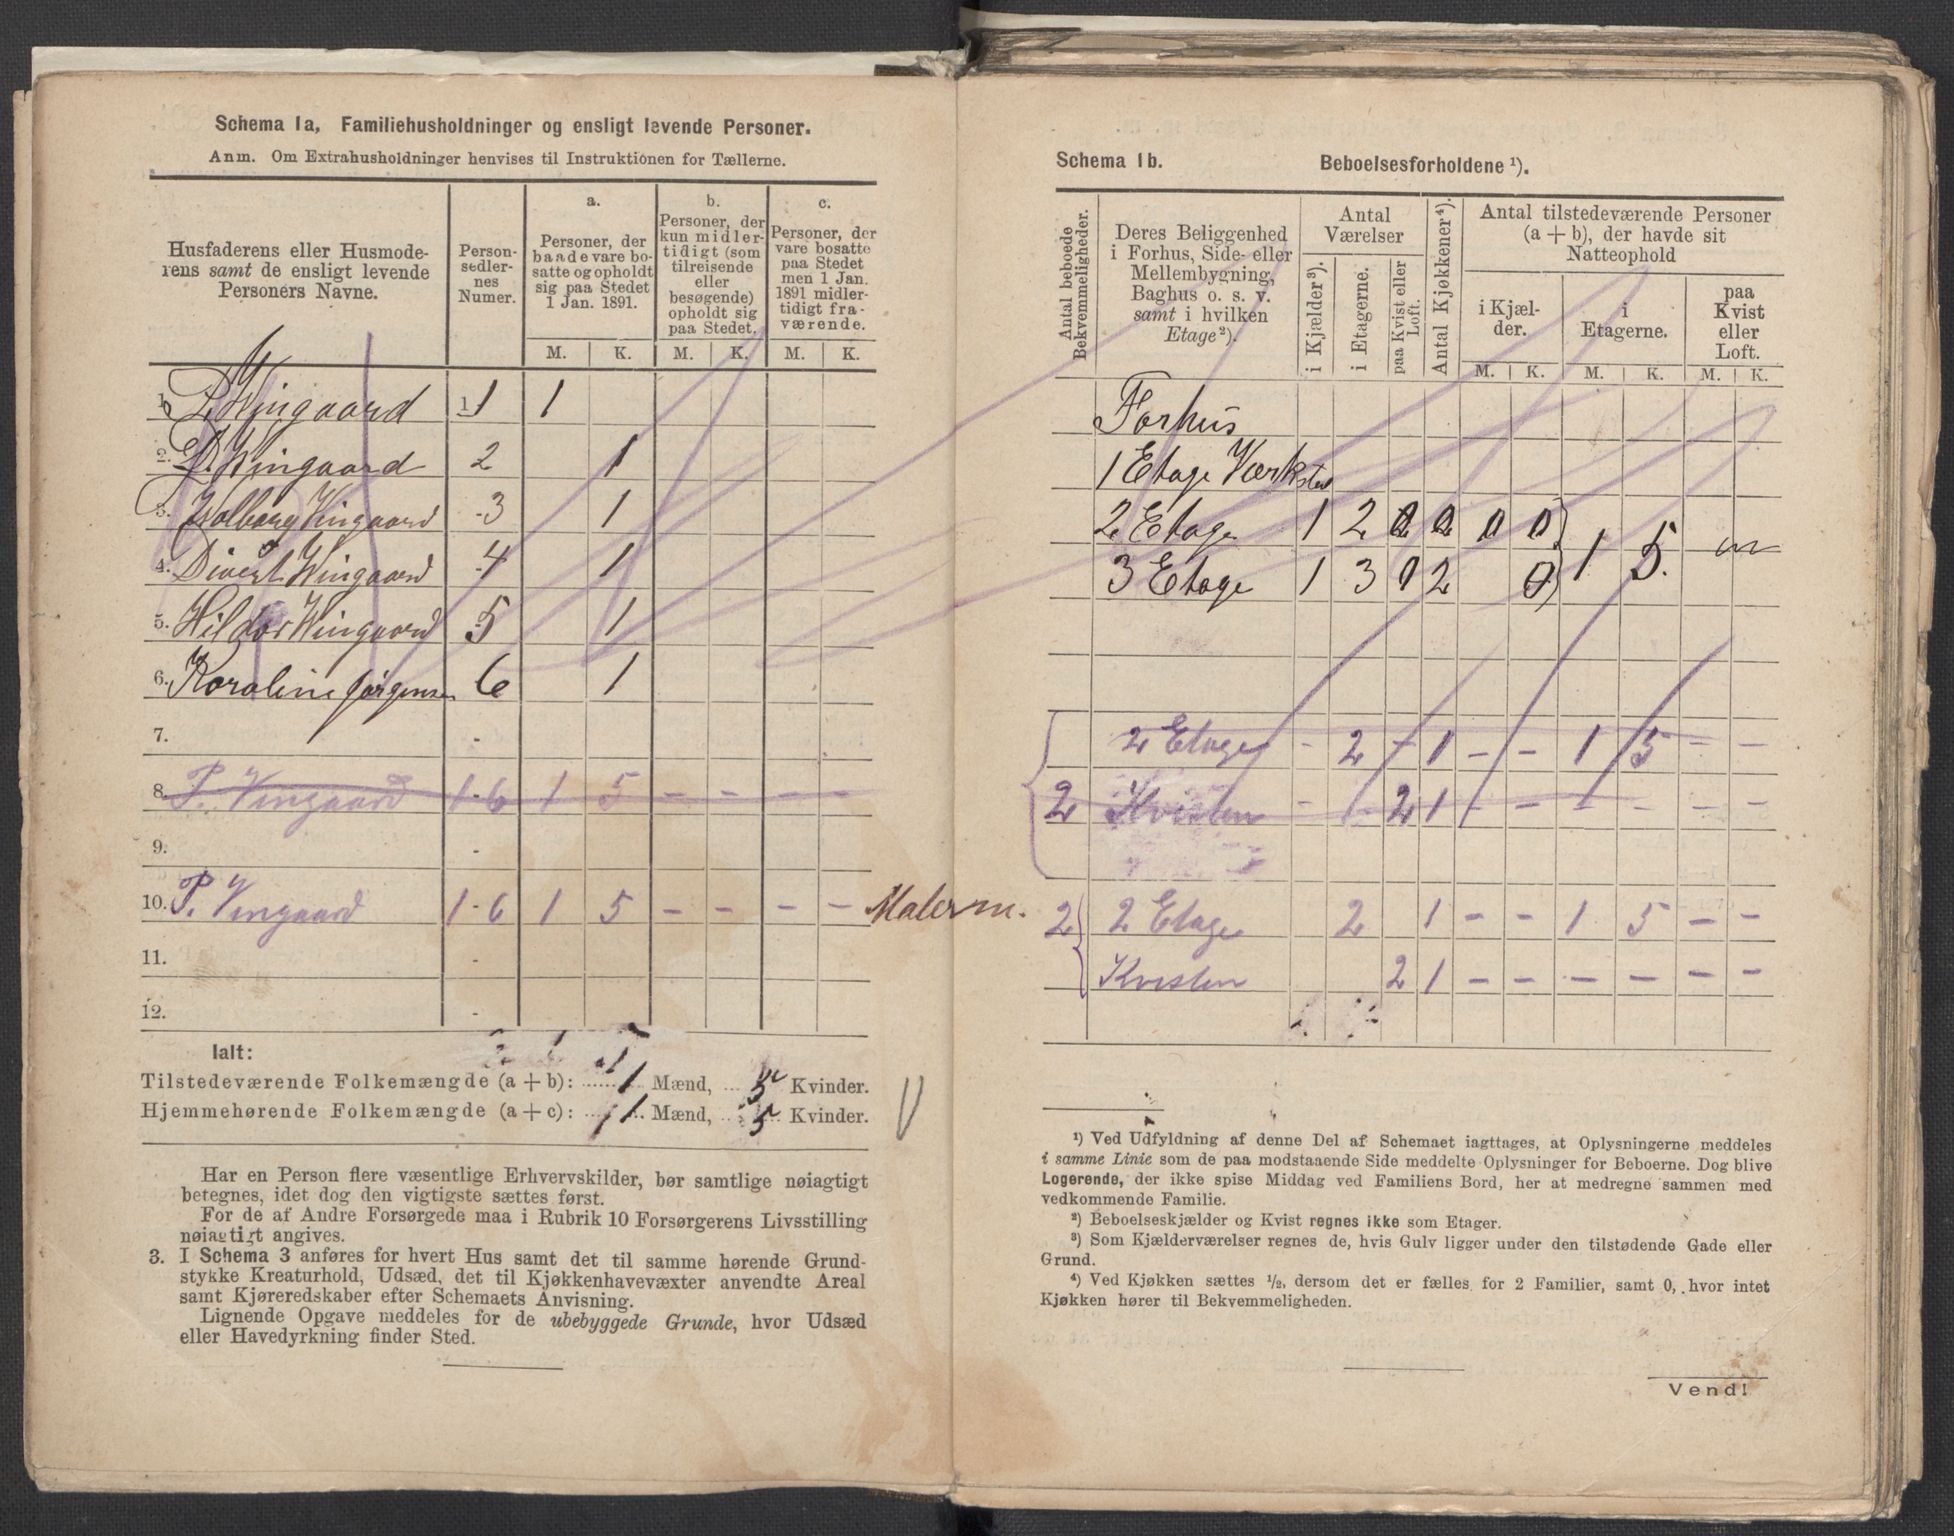 Schema 1a, Familiehusholdninger og ensligt levende Personer.
Anm. Om Extrahusholdninger henvises til Instruktionen for Tællerne.
Husfaderens eller Husmode-
rens samt de ensligt levende
Personers Navne.
Person-
sedler-
nes
Numer.
a.
Personer, der
baade vare bo-
satte og opholdt
sig paa Stedet
1 Jan. 1891.
b.
Personer, der
kun midler-
tidigt (som
tilreisende
eller
besøgende)
opholdt sig
paa Stedet.
c.
Personer, der
vare bosatte
paa Stedet
men 1 Jan.
1891 midler-
tidigt fra-
værende.
M. K. M. K. M. K.
1. Wingaard 1 1
2. Wingaard 2 1
3. Wingaard 3 1
4. Wingaard 4 1
5. Wingaard 5 1
6. Karoline Jørgensen 6 1
7. -
8. P. Vingaard 1-6 1 5 – – – –
9. -
10. P. Vingaard 1-6 1 5 – – – – Malerm.
11. -
12. -
Ialt:
Tilstedeværende Folkemængde (a + b): 1 Mænd, 5 Kvinder.
Hjemmehørende Folkemængde (a + c): 1 Mænd, 5 Kvinder.
Har en Person flere væsentlige Erhvervskilder, bør samtlige nøiagtigt
betegnes, idet dog den vigtigste sættes først.
For de af Andre Forsørgede maa i Rubrik 10 Forsørgerens Livsstilling
nøiagtigt angives.
3. I Schema 3 anføres for hvert Hus samt det til samme hørende Grund-
stykke Kreaturhold, Udsæd, det til Kjøkkenhavevæxter anvendte Areal
samt Kjøreredskaber efter Schemaets Anvisning.
Lignende Opgave meddeles for de ubebyggede Grunde, hvor Udsæd
eller Havedyrkning finder Sted.
Schema 1b. Beboelsesforholdene ¹).
Antal beboede
Bekvemmeligheder.
Deres Beliggenhed
i Forhus, Side- eller
Mellembygning,
Baghus o. s. v.
samt i hvilken
Etage²).
Antal
Værelser
i Kjælder³).
i Etagerne.
paa Kvist eller
Loft.
Antal Kjøkkener⁴).
Antal tilstedeværende Personer
(a + b), der havde sit
Natteophold
i Kjæl-
der.
i
Etagerne.
paa
Kvist
eller
Loft.
M. K. M. K. M. K.
Forhus
1 Etage Værksted
2 Etage 1 2 0 2 0 0
3 Etage 1 3 0 2 0 1 5
2 Etage - 2 - 1 – – 1 5 – –
2 Kvisten - - 2 1 – – – – – –
2 2 Etage 2 1 – – 1 5 – –
Kvisten 2 1 – – – – – –
¹) Ved Udfyldning af denne Del af Schemaet iagttages, at Oplysningerne meddeles
i samme Linie som de paa modstaaende Side meddelte Oplysninger for Beboerne. Dog blive
Logerende, der ikke spise Middag ved Familiens Bord, her at medregne sammen med
vedkommende Familie.
²) Beboelseskjælder og Kvist regnes ikke som Etager.
³) Som Kjælderværelser regnes de, hvis Gulv ligger under den tilstødende Gade eller
Grund.
⁴) Ved Kjøkken sættes ½, dersom det er fælles for 2 Familier, samt 0, hvor intet
Kjøkken hører til Bekvemmeligheden.
Vend!